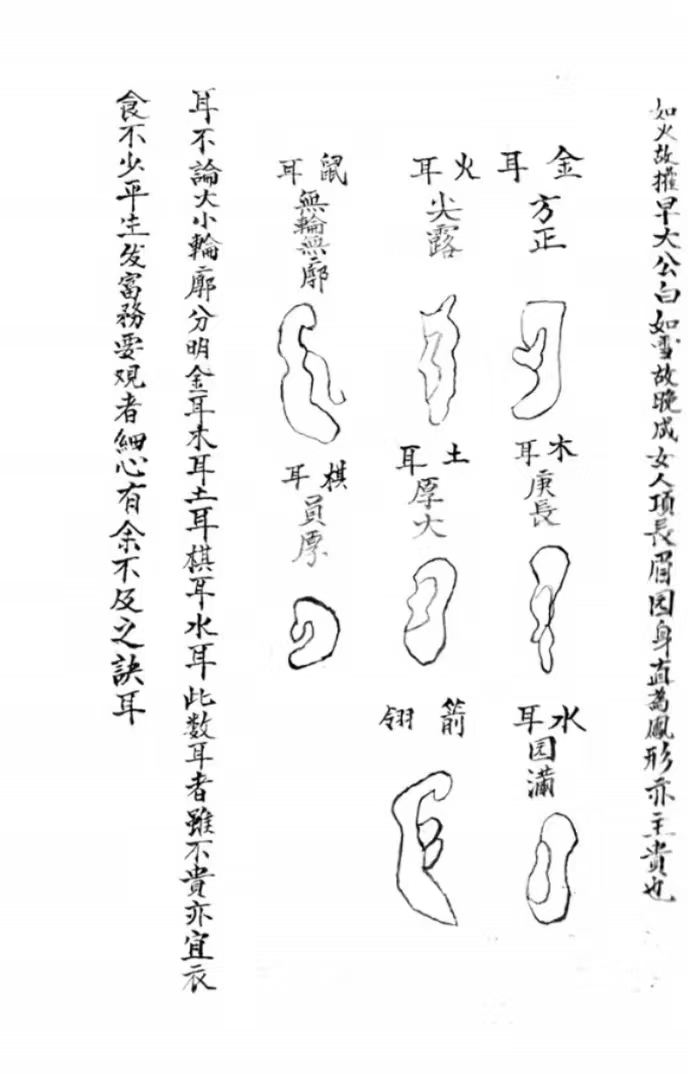 如火故權早大公白如雪故晚成女人項長眉园身直為鳳形亦主貴也
金耳
方正
木耳
庚長
水耳
园滿
火耳
尖露
土耳
厚大
箭翎
鼠耳
無輪無廓
棋耳
員厚
耳不論大小輪廓分明金耳木耳土耳棋耳水耳此数耳者雖不貴亦宜衣
食不少平生发富務要观者細心有余不及之訣耳